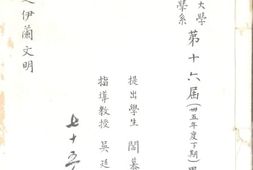 大學
學系
第十六屆(卅五年度下期)
提出學生 閻
指導教授 吳廷
七十五
伊蘭文明